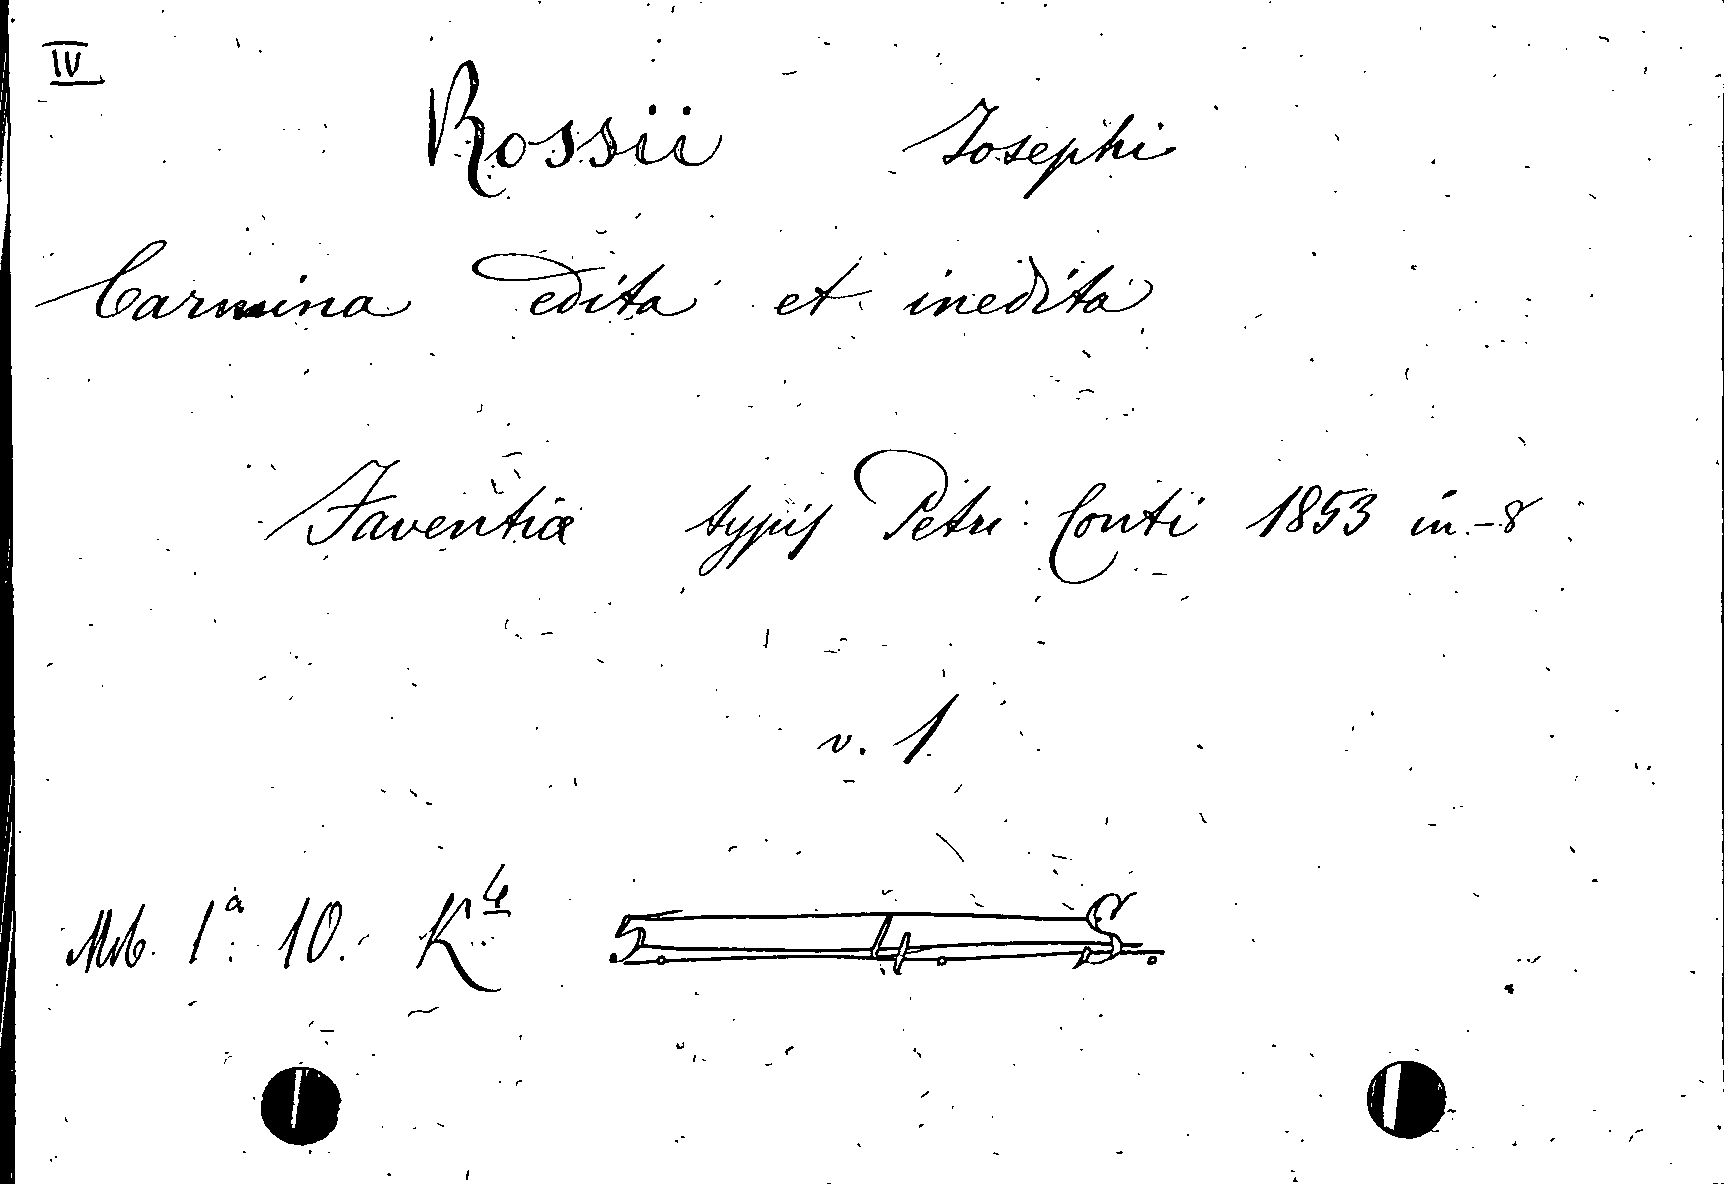 IV
Rossii Josephi
Carmina edita et inedita
Faventiæ typis Petri Conti 1853 in-8
v. 1
Mb. 1ª 10. K4
5. 4. 8.